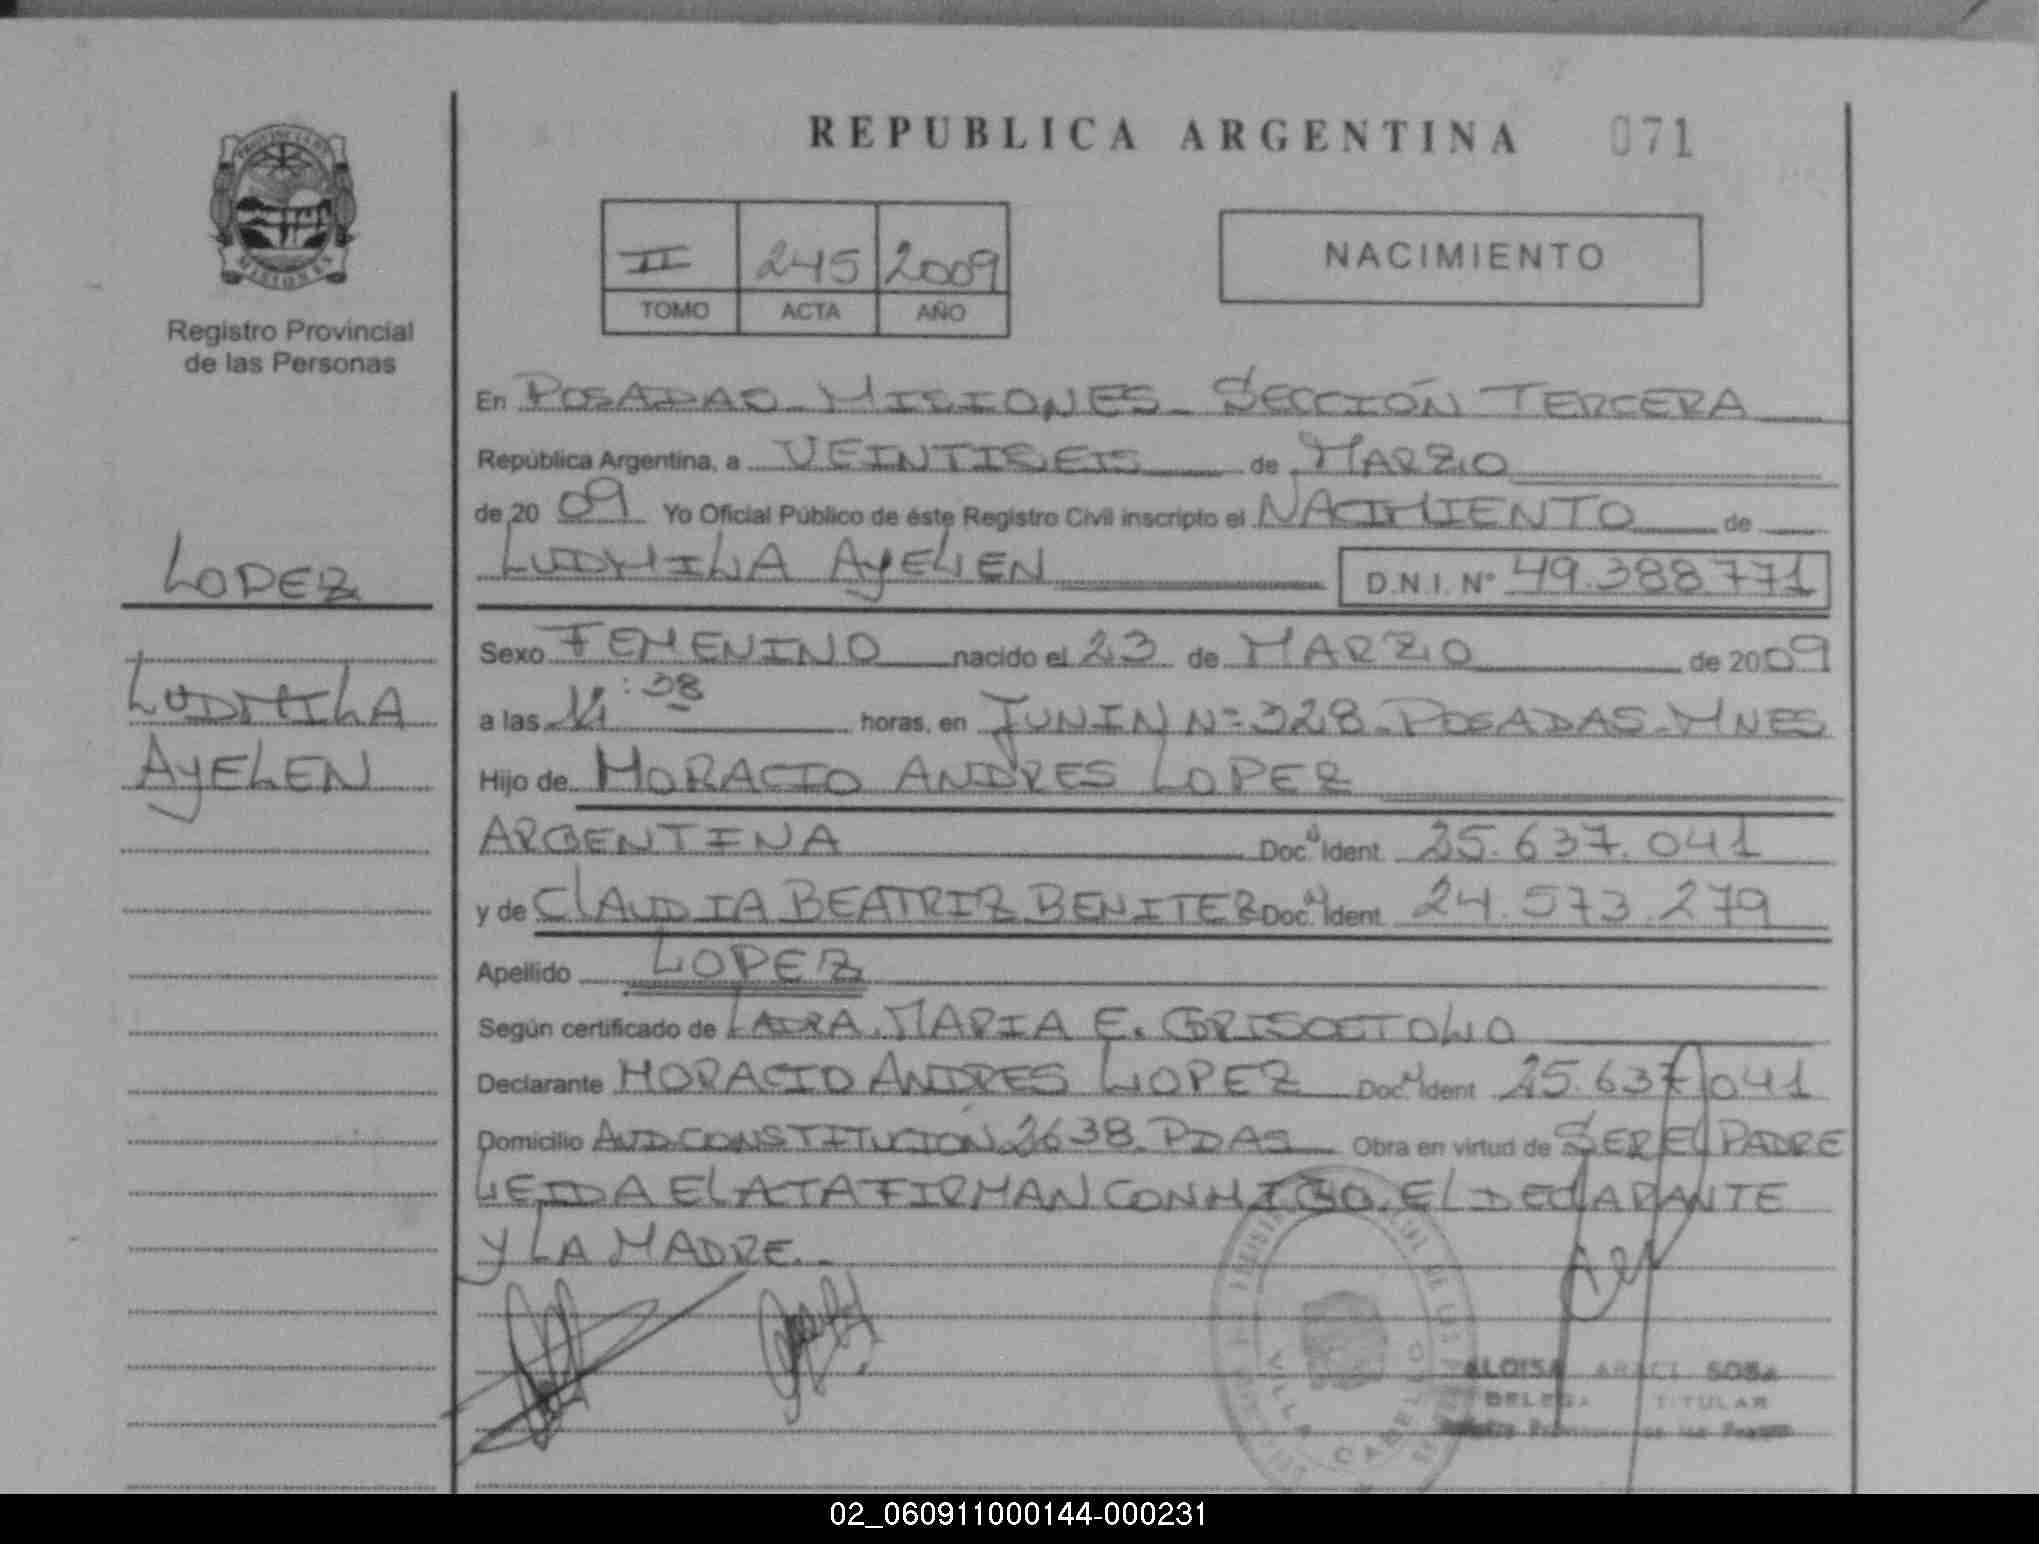 REPUBLICA ARGENTINA 071
PROVINCIA DE
MISIONES
Registro Provincial
de las Personas
II 245 2009
TOMO ACTA AÑO
NACIMIENTO
En POSADAS - MISIONES - SECCIÓN TERCERA
República Argentina, a VEINTISEIS de MARZO
de 2009 Yo Oficial Público de éste Registro Civil inscripto el NACIMIENTO de
LUDMILA AYELEN D.N.I. Nº 49.388.771
LOPEZ
LUDMILA
AYELEN
Sexo FEMENINO nacido el 23 de MARZO de 2009
a las :38 horas, en JUNIN Nº 328 - POSADAS - MNES
Hijo de HORACIO ANDRES LOPEZ
ARGENTINA Doc. Ident. 25.637.041
y de CLAUDIA BEATRIZ BENITEZ Doc. Ident. 24.573.279
Apellido LOPEZ
Según certificado de LA DRA. MARIA E.
Declarante HORACIO ANDRES LOPEZ Doc. Ident. 25.637.041
Domicilio AVD CONSTITUCIÓN 2638 - PDAS Obra en virtud de SER EL PADRE
LEIDA EL ACTA FIRMAN CONMIGO, EL DECLARANTE
Y LA MADRE.
VILLA CABELLO
ALOISA ARACI SOSA
TITULAR
02_060911000144-000231